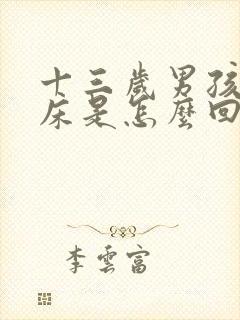 十三歲男孩
床是怎麼回
李雲富